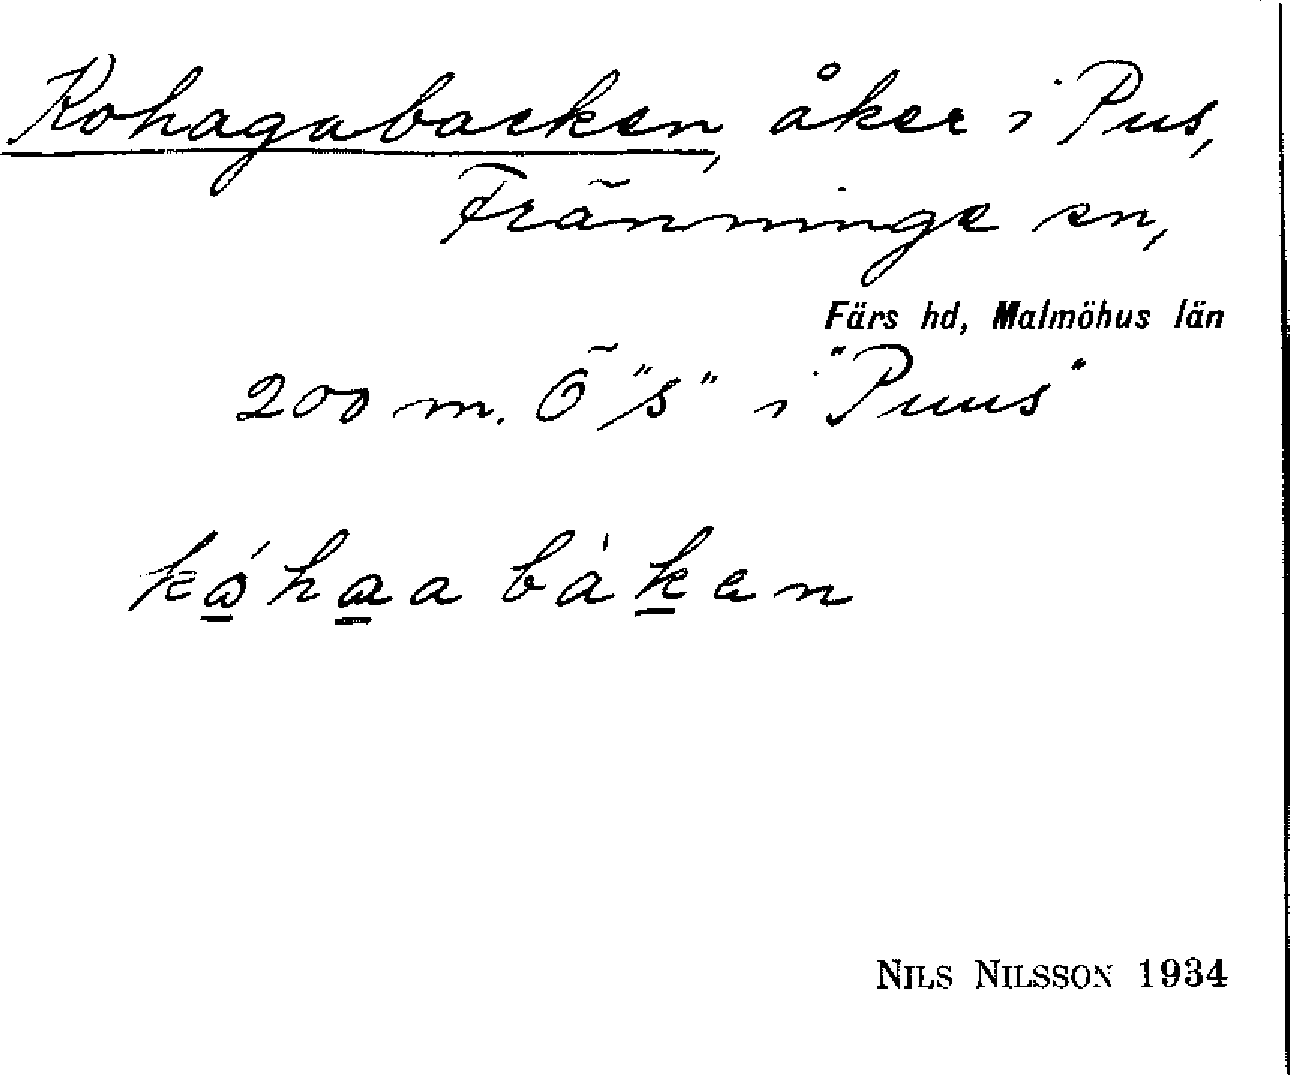 Kohagabacken, åker i Pus,
Fränninge sn,
Färs hd, Malmöhus län
200 m. Ö "s" i "Puus"
kǻhaa bàken
NILS NILSSON 1934